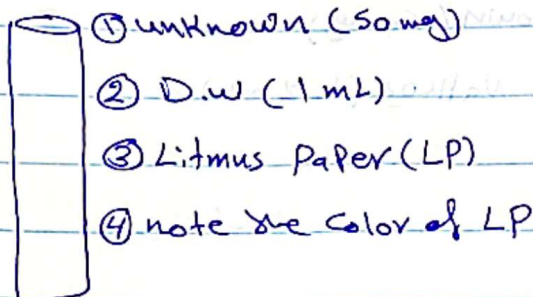 ① unknown (50 mg)
② D.w (1 mL)
③ Litmus Paper (LP)
④ note the Color of LP